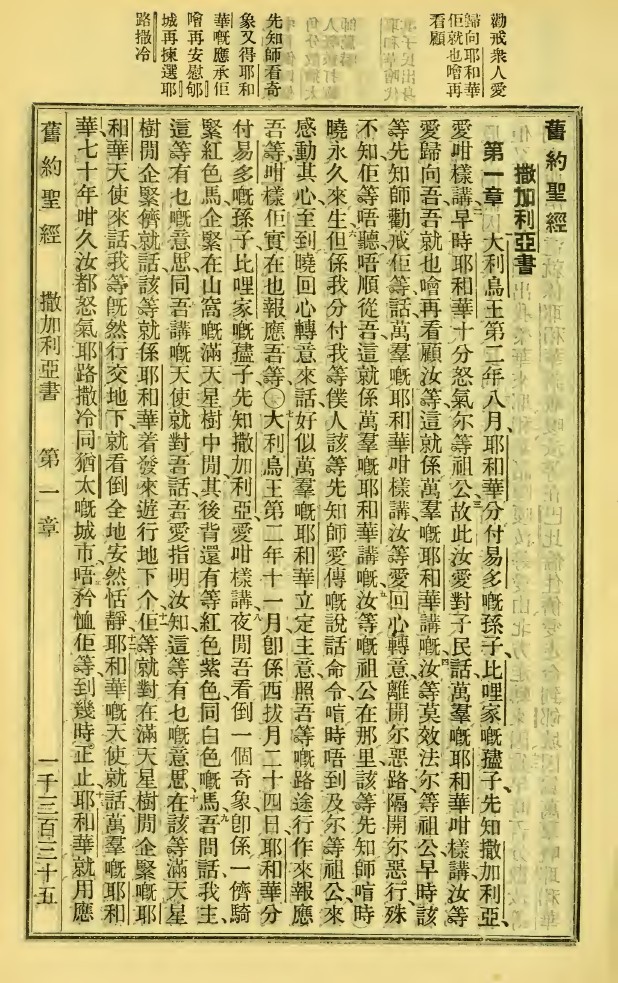 勸戒衆人愛
歸向耶和華
佢就也噲再
看顧
先知師看奇
象又得耶和
華嘅應承佢
噲再安慰郇
城再揀選耶
路撒冷
舊約聖經
撒加利亞書
第一章 大利烏王第二年八月耶和華分付易多嘅孫子比哩家嘅孻子先知撒加利亞
愛咁樣講二早時耶和華十分怒氣尔等祖公三故此汝愛對子民話萬羣嘅耶和華咁樣講汝等
愛歸向吾吾就也噲再看顧汝等這就係萬羣嘅耶和華講嘅四汝等莫效法尔等祖公早時該
等先知師勸戒佢等話萬羣嘅耶和華咁樣講汝等愛回心轉意離開尔惡路隔開尔惡行殊
不知佢等唔聽唔順從吾這就係萬羣嘅耶和華講嘅五汝等嘅祖公在那里該等先知師喑時
曉永久來生六但係我分付我等僕人該等先知師愛傳嘅說話命令喑時唔到及尔等祖公來
感動其心至到曉回心轉意來話好似萬羣嘅耶和華立定主意照吾等嘅路途行作來報應
吾等咁樣佢實在也報應吾等〇七大利烏王第二年十一月卽係西拔月二十四日耶和華分
付易多嘅孫子比哩家嘅孻子先知撒加利亞愛咁樣講八夜間吾看倒一個奇象卽係一儕騎
緊紅色馬企緊在山窩嘅滿天星樹中間其後背還有等紅色紫色同白色嘅馬九吾問話我主
這等有也嘅意思同吾講嘅天使就對吾話吾愛指明汝知這等有也嘅意思十在該等滿天星
樹間企緊儕就話該等就係耶和華着發來遊行地下个十一佢等就對在滿天星樹間企緊嘅耶
和華天使來話我等旣然行交地下就看倒全地安然恬靜十二耶和華嘅天使就話萬羣嘅耶和
華七十年咁久汝都怒氣耶路撒冷同猶太嘅城市唔矜恤佢等到幾時正止十三耶和華就用應
舊約聖經 撒加利亞書 第一章 一千三百三十五